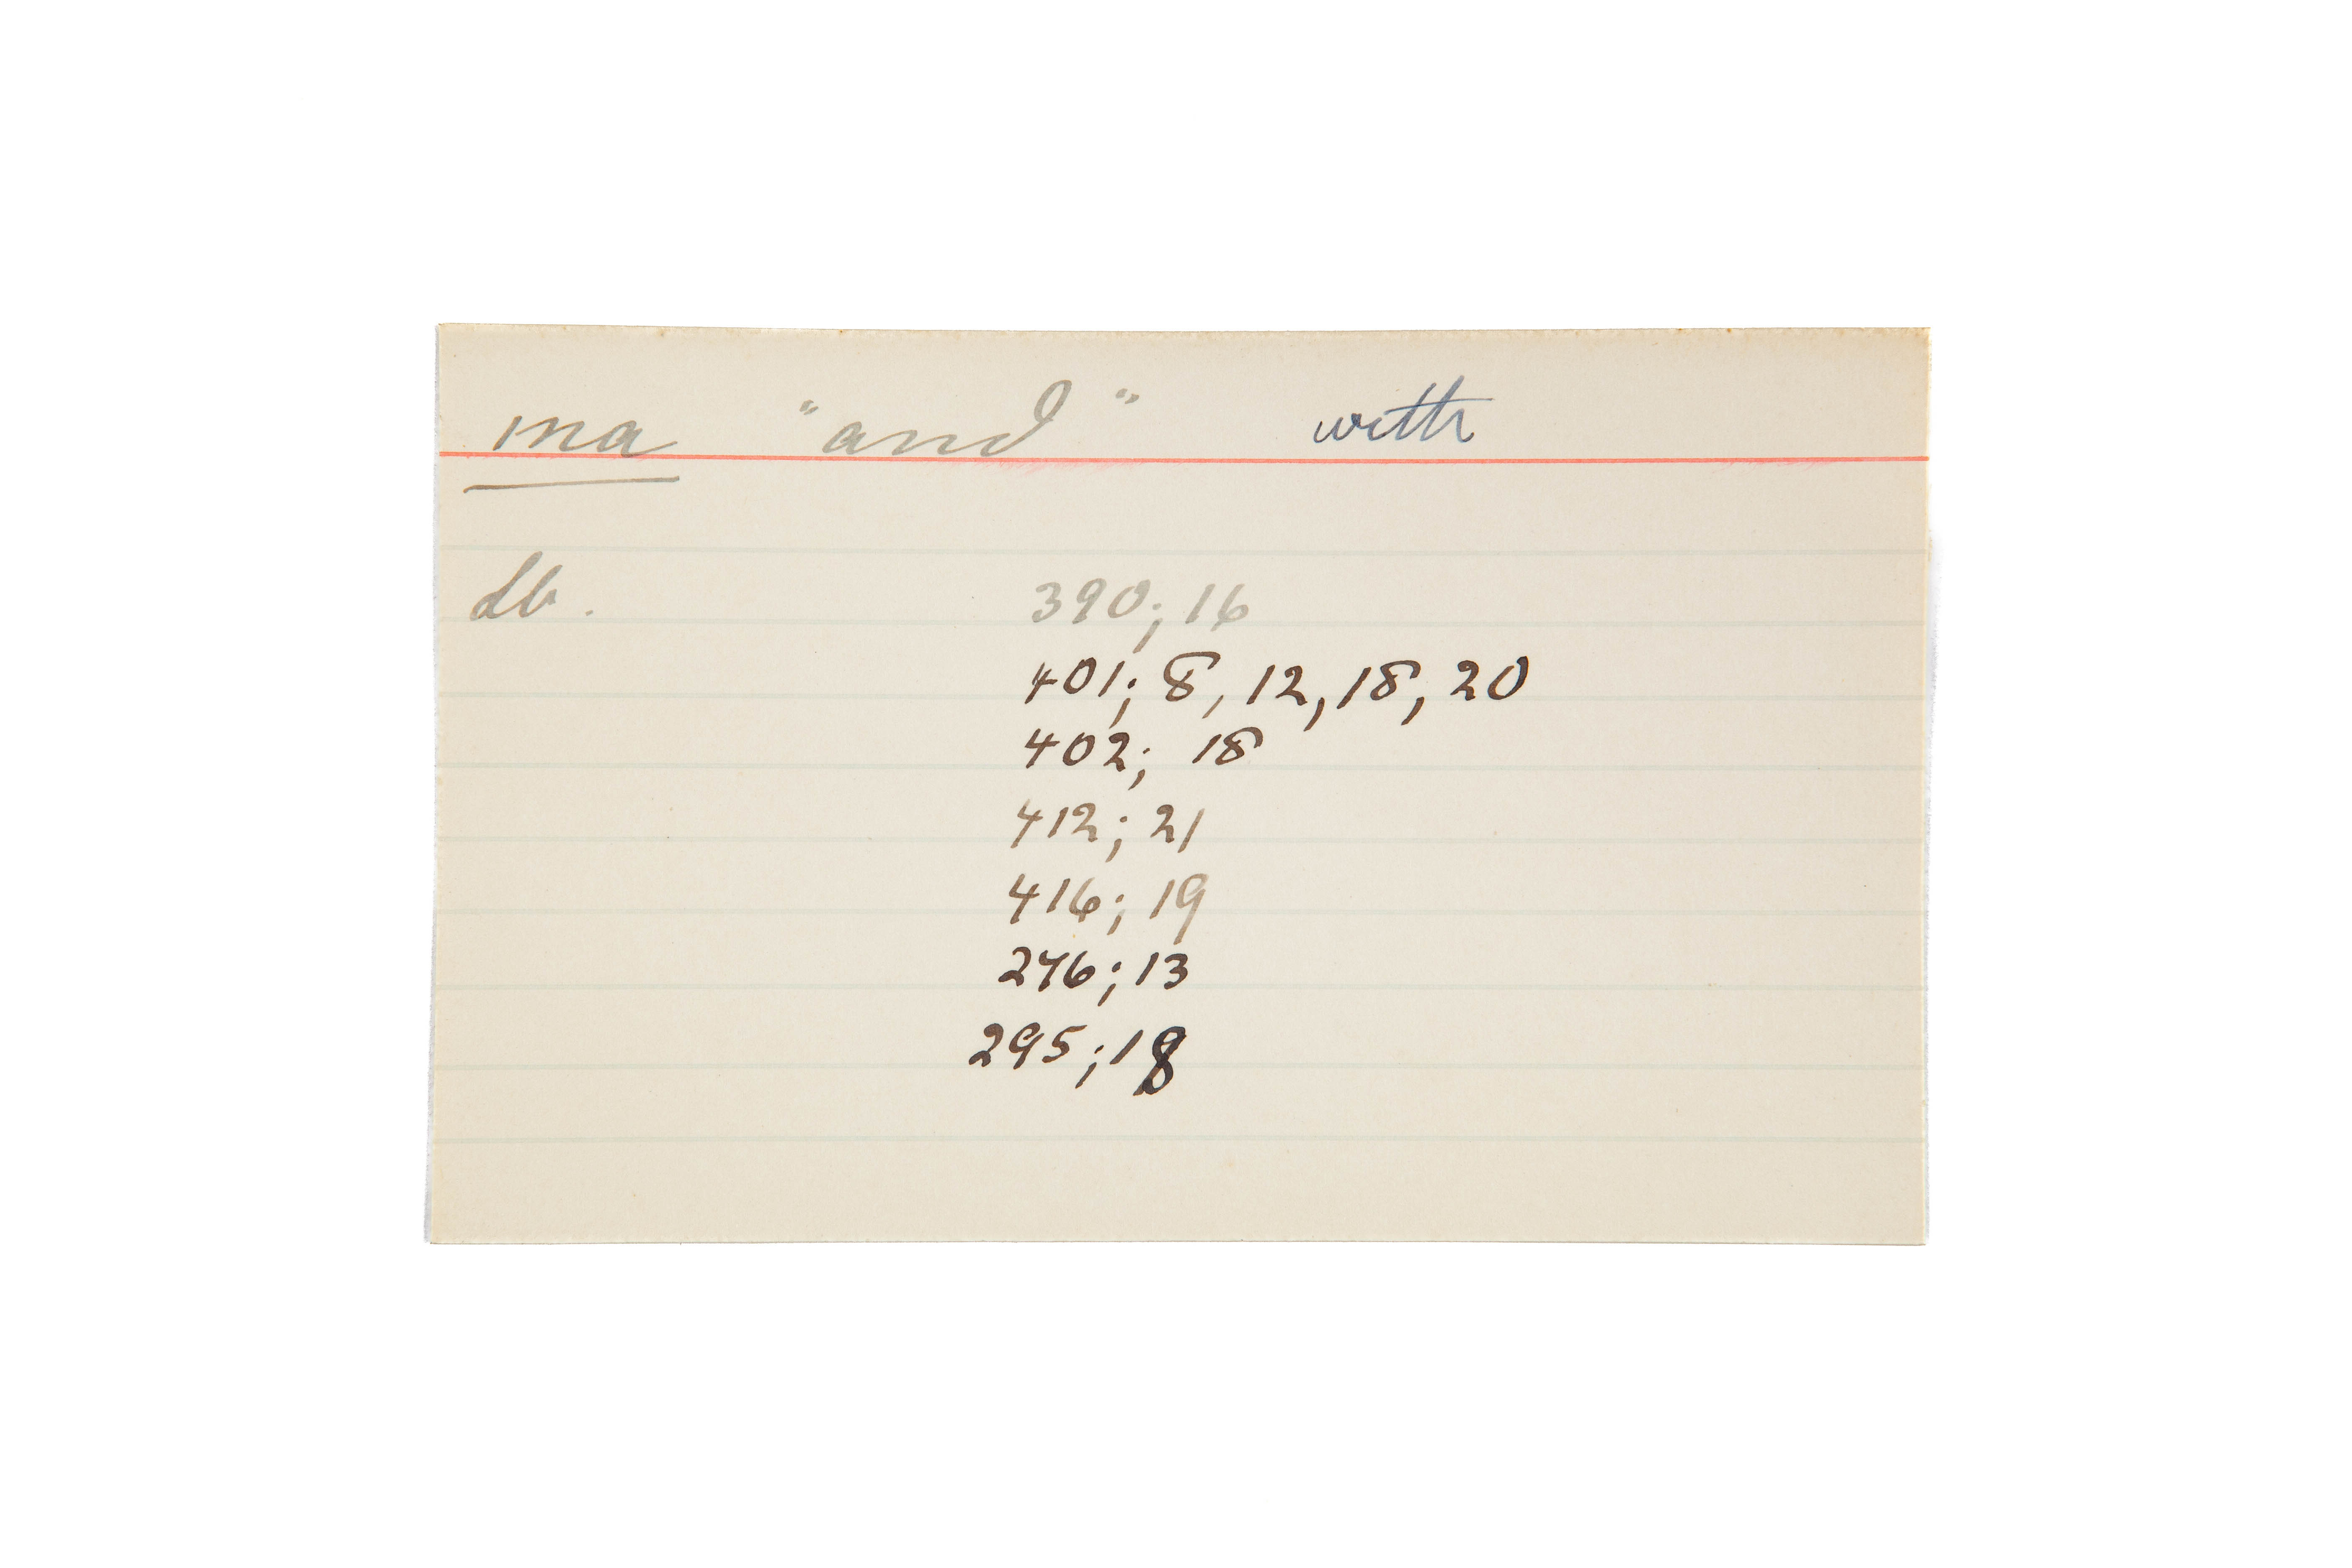 ma "and" with
Lb. 390; 16
401; 8, 12, 18, 20
402; 18
412; 21
416; 19
246; 13
295; 18